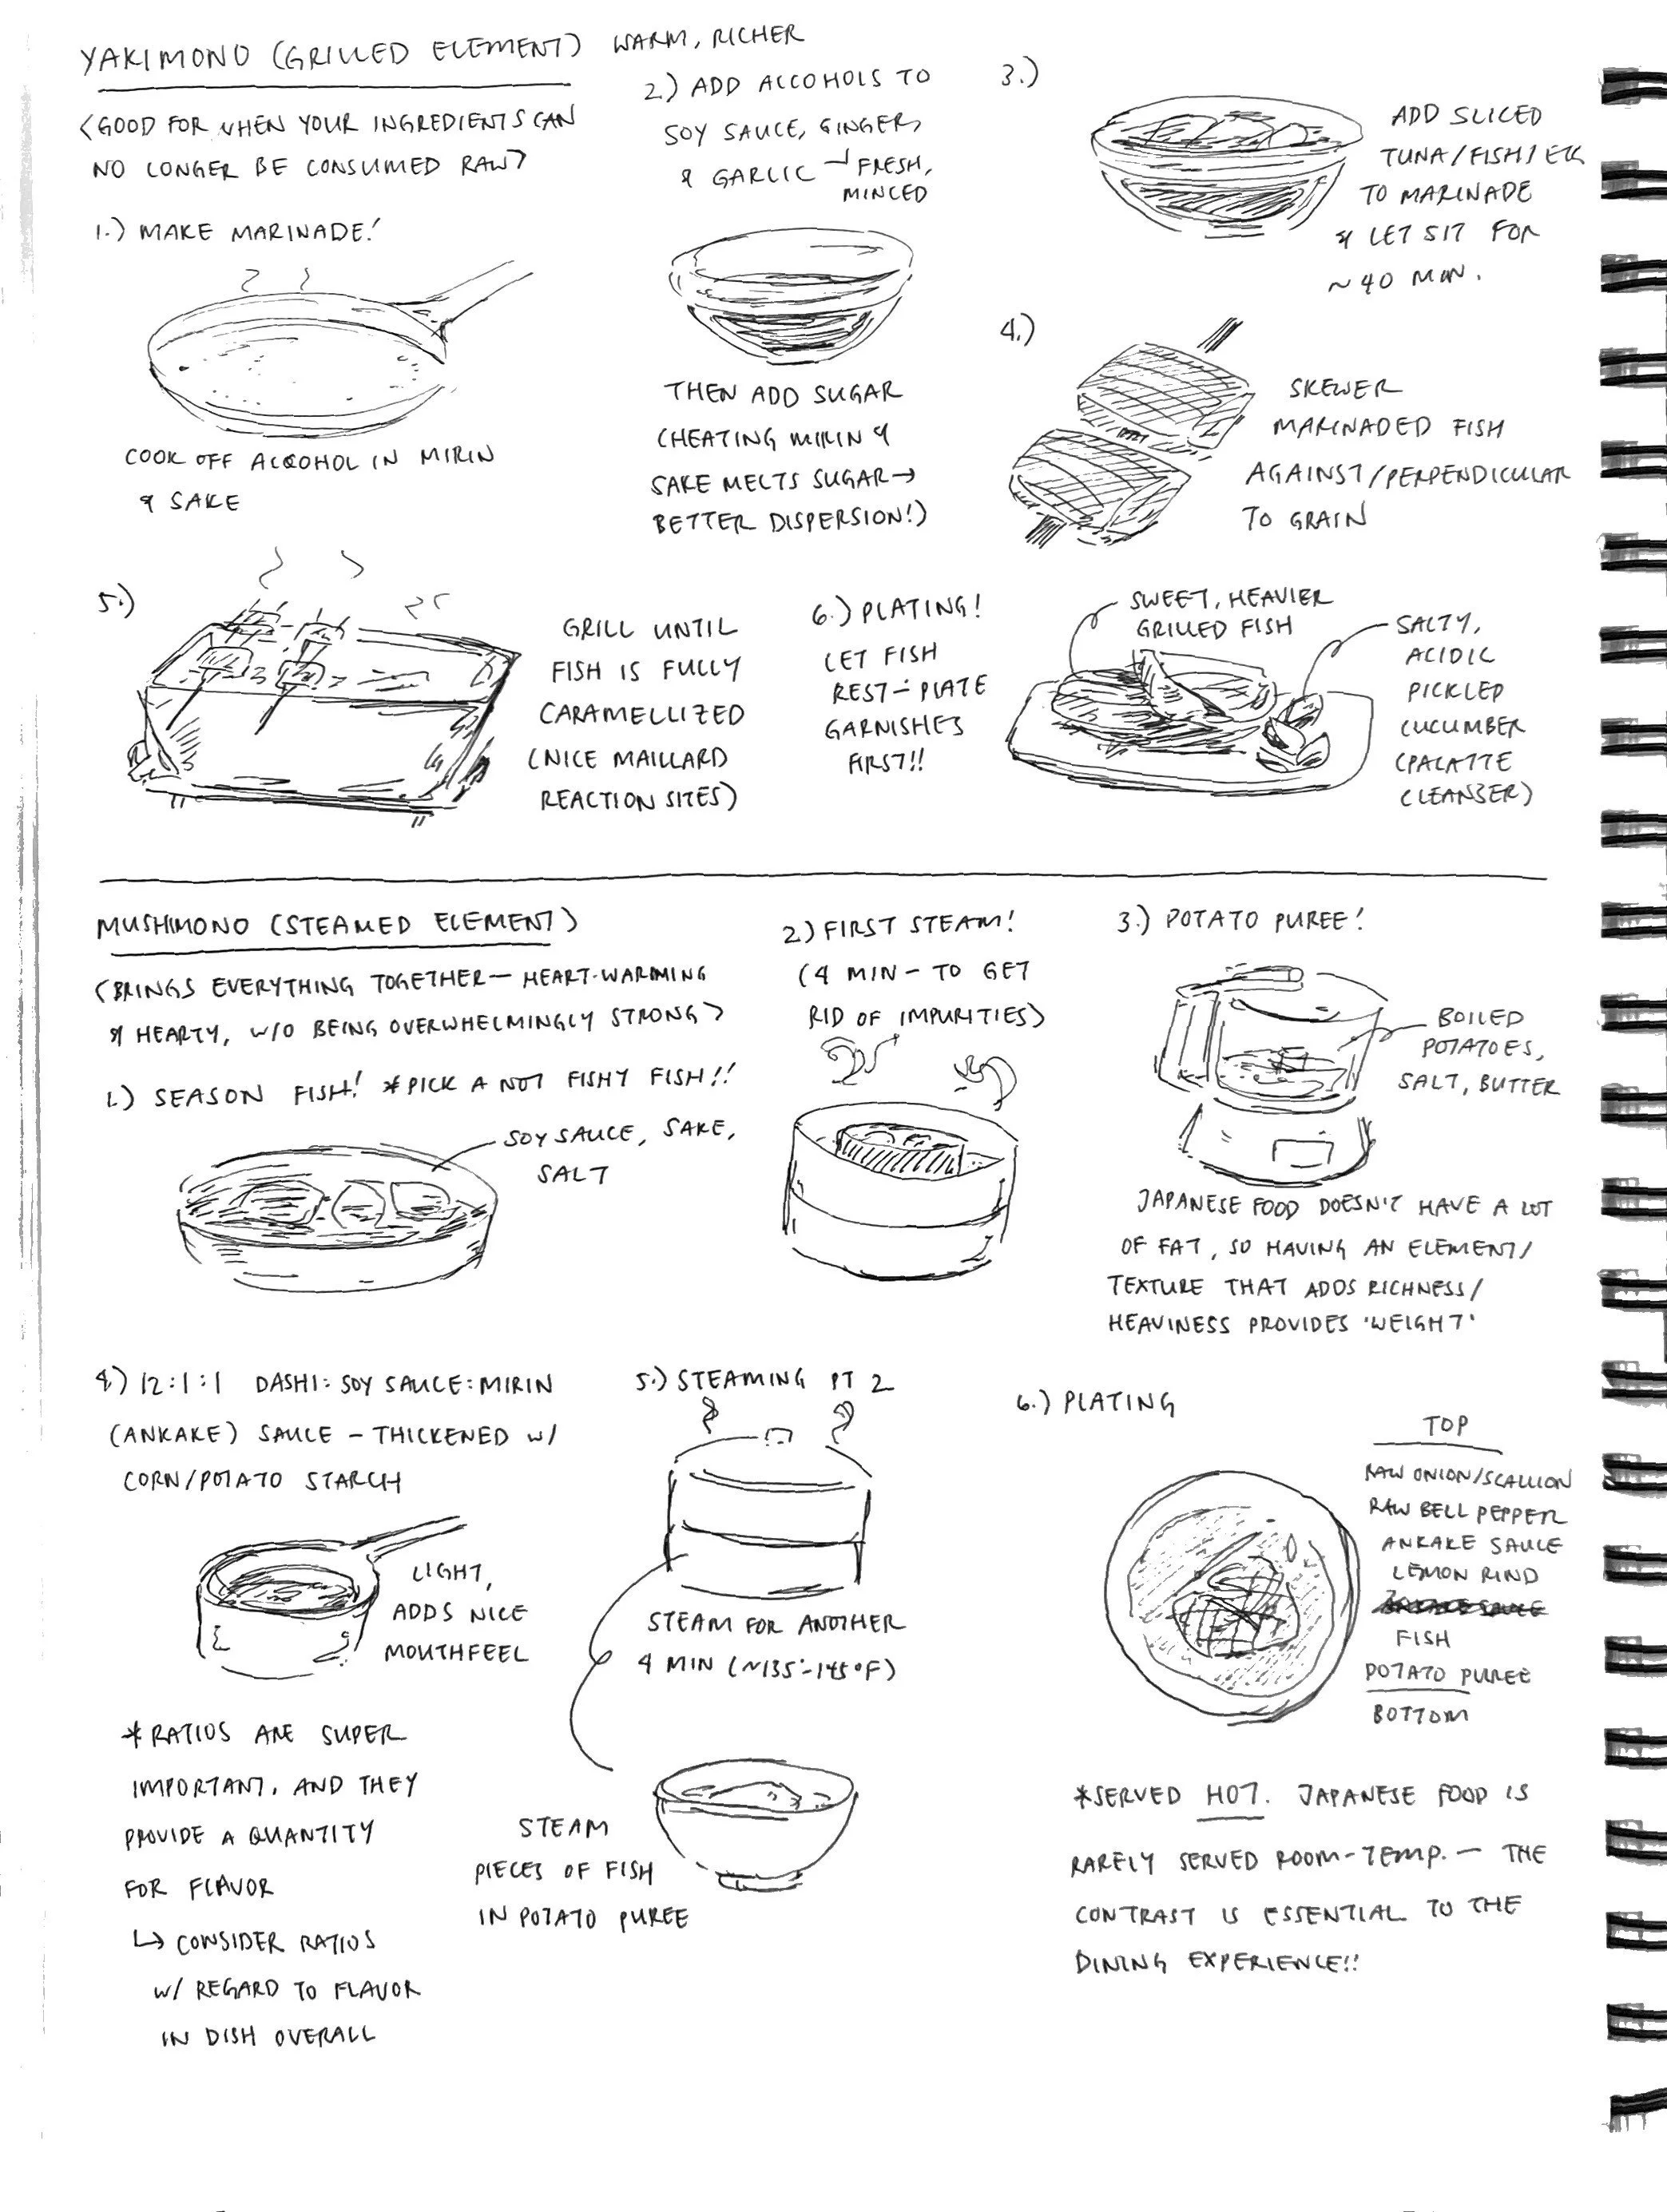 YAKIMONO (GRILLED ELEMENT) WARM, RICHER
(GOOD FOR WHEN YOUR INGREDIENTS CAN
NO LONGER BE CONSUMED RAW)
1.) MAKE MARINADE!
COOK OFF ALCOHOL IN MIRIN
& SAKE
2.) ADD ALCOHOLS TO
SOY SAUCE, GINGER,
& GARLIC
FRESH,
MINCED
THEN ADD SUGAR
(HEATING MIRIN &
SAKE MELTS SUGAR →
BETTER DISPERSION!)
3.)
ADD SLICED
TUNA/FISH/ETC
TO MARINADE
& LET SIT FOR
~40 MIN.
4.)
SKEWER
MARINADED FISH
AGAINST/PERPENDICULAR
TO GRAIN
5.)
GRILL UNTIL
FISH IS FULLY
CARAMELLIZED
(NICE MAILLARD
REACTION SITES)
6.) PLATING!
LET FISH
REST - PLATE
GARNISHES
FIRST!!
SWEET, HEAVIER
GRILLED FISH
SALTY,
ACIDIC
PICKLED
CUCUMBER
(PALATTE
CLEANSER)
MUSHIMONO (STEAMED ELEMENT)
(BRINGS EVERYTHING TOGETHER — HEART-WARMING
& HEARTY, W/O BEING OVERWHELMINGLY STRONG)
1.) SEASON FISH! *PICK A NOT FISHY FISH!!
SOY SAUCE, SAKE,
SALT
2.) FIRST STEAM!
(4 MIN - TO GET
RID OF IMPURITIES)
3.) POTATO PUREE!
BOILED
POTATOES,
SALT, BUTTER
JAPANESE FOOD DOESN'T HAVE A LOT
OF FAT, SO HAVING AN ELEMENT/
TEXTURE THAT ADDS RICHNESS/
HEAVINESS PROVIDES 'WEIGHT'
4.) 12:1:1 DASHI: SOY SAUCE: MIRIN
(ANKAKE) SAUCE - THICKENED W/
CORN/POTATO STARCH
LIGHT,
ADDS NICE
MOUTHFEEL
*RATIOS ARE SUPER
IMPORTANT, AND THEY
PROVIDE A QUANTITY
FOR FLAVOR
↳ CONSIDER RATIOS
W/ REGARD TO FLAVOR
IN DISH OVERALL
5.) STEAMING PT 2
STEAM FOR ANOTHER
4 MIN (~135°-145°F)
STEAM
PIECES OF FISH
IN POTATO PUREE
6.) PLATING
TOP
RAW ONION/SCALLION
RAW BELL PEPPER
ANKAKE SAUCE
LEMON RIND
FISH
POTATO PUREE
BOTTOM
*SERVED HOT. JAPANESE FOOD IS
RARELY SERVED ROOM-TEMP. — THE
CONTRAST IS ESSENTIAL TO THE
DINING EXPERIENCE!!